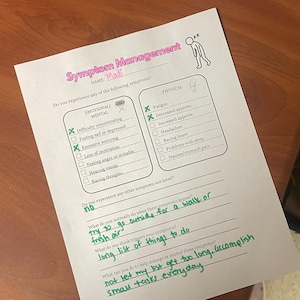 Symptom Management
NAME:
Do you experience any of the following symptoms?
EMOTIONAL/
MENTAL
Difficulty concentrating
Feeling sad or depressed
Excessive worrying
Loss of motivation
Feeling angry or irritable
Hearing voices
Racing thoughts
PHYSICAL
Fatigue
Decreased appetite
Headaches
Racing heart
Problems with sleep
Do you experience any other symptoms not listed?
no
What do you normally do when these symptoms
try to go outside for a walk or
fresh air
What do you think triggers your symptoms?
long list of things to do
What can you do to help manage or
not let my list get too long, accomplish
small tasks everyday